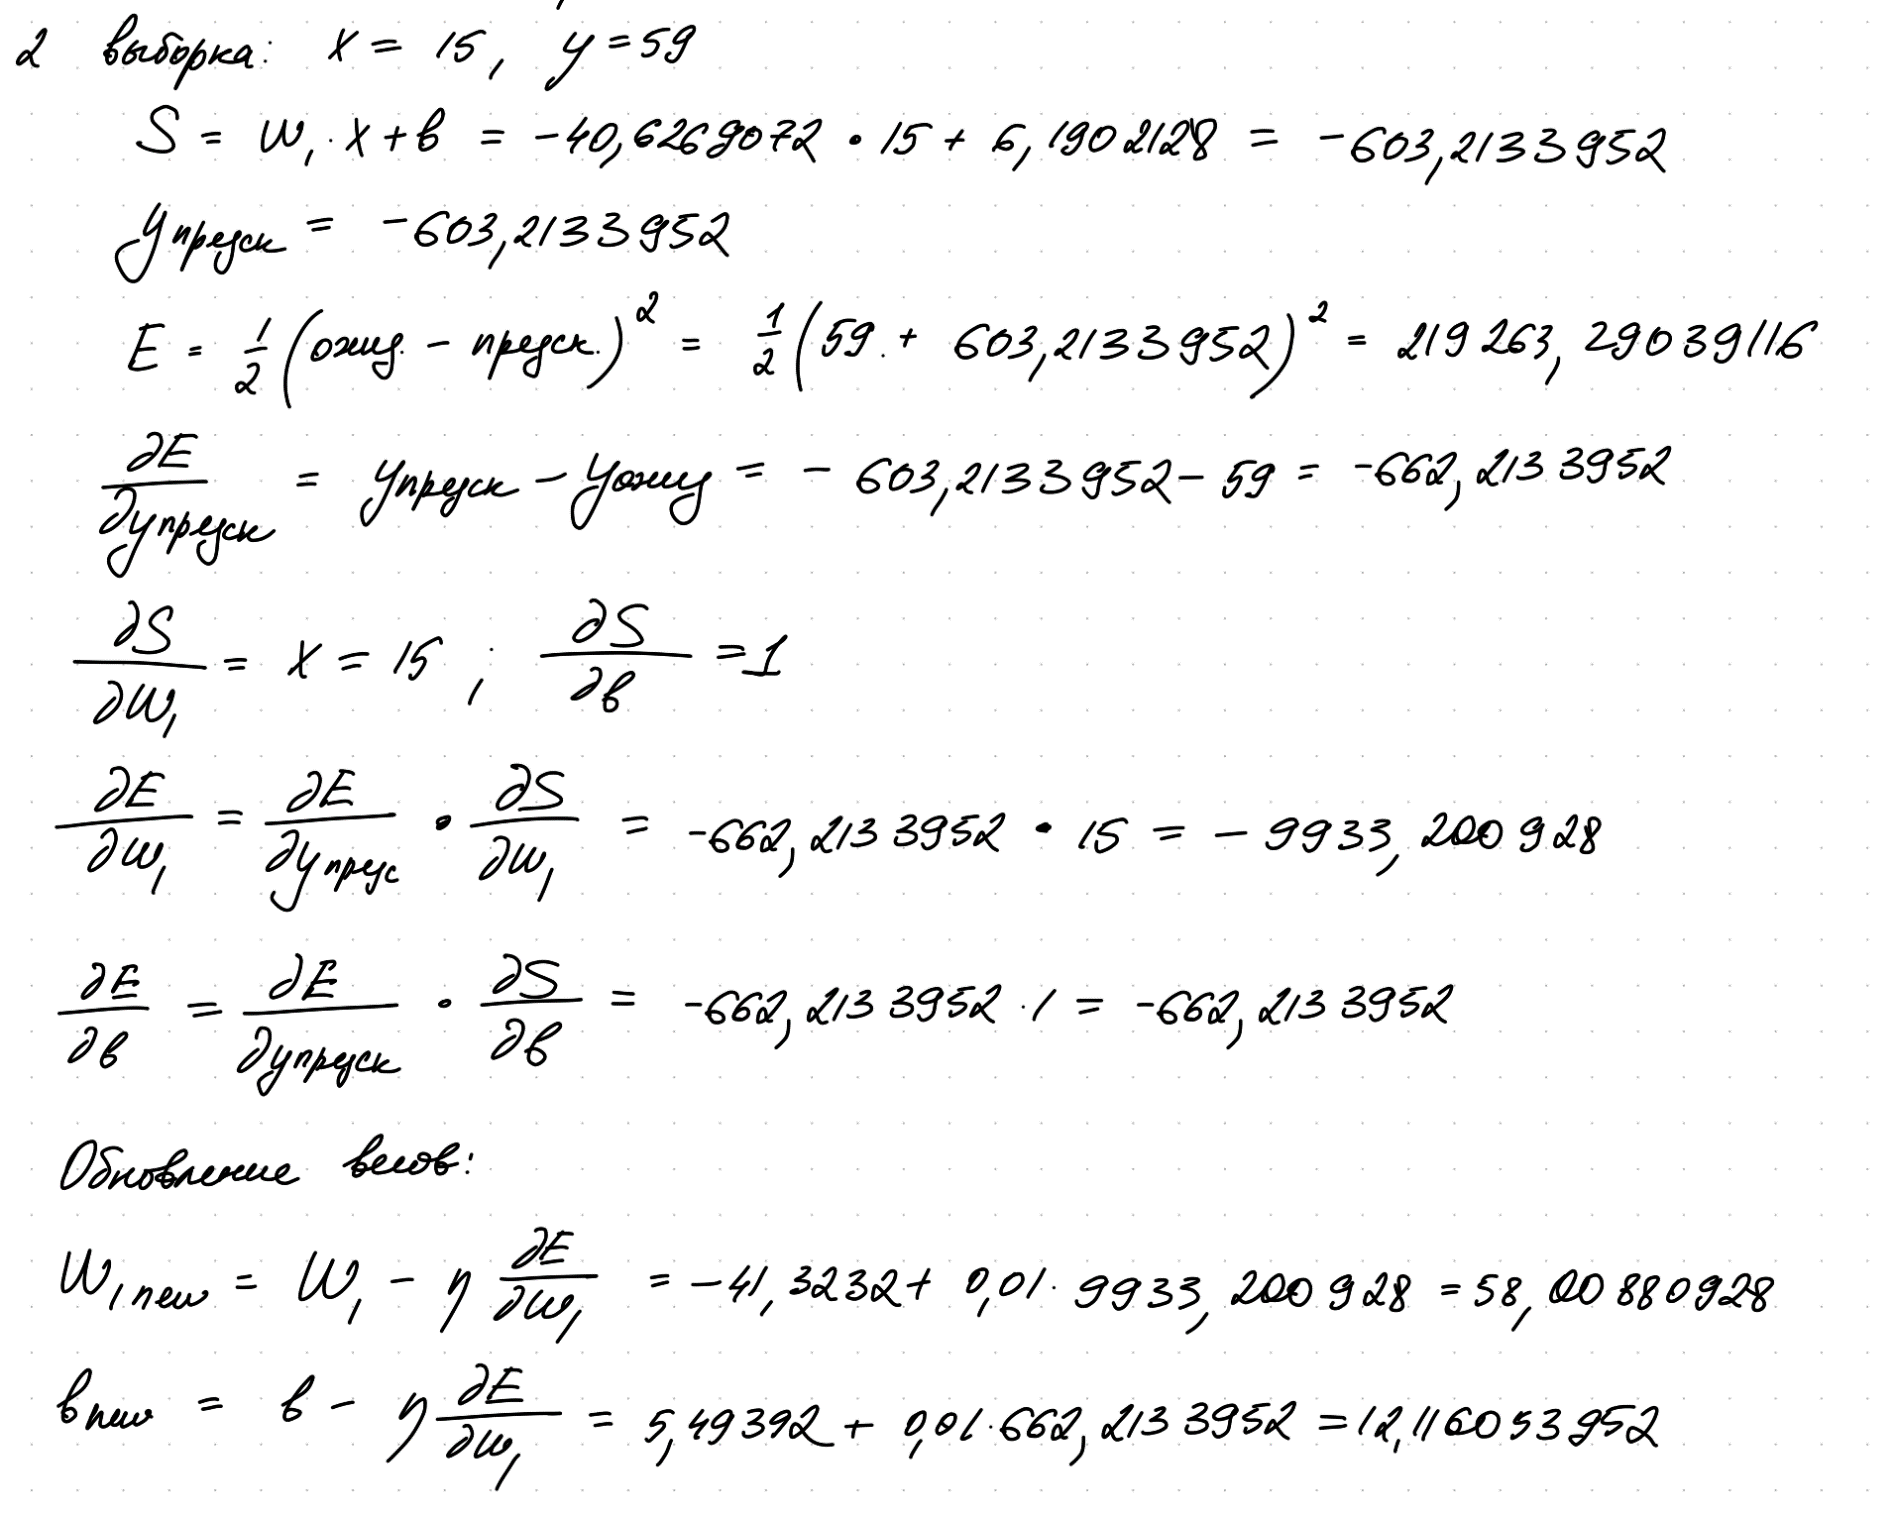 2 выборка: x = 15, y = 59
S = w₁ · x + b = -40,6269072 • 15 + 6,1902128 = -603,2133952
y предск = -603,2133952
E = 1/2 (ожид. - предск.)² = 1/2 (59 + 603,2133952)² = 219263,29039116
∂E/∂y предск = y предск - y ожид = -603,2133952 - 59 = -662,2133952
∂S/∂w₁ = x = 15 ; ∂S/∂b = 1
∂E/∂w₁ = ∂E/∂y предс • ∂S/∂w₁ = -662,2133952 • 15 = -9933,200928
∂E/∂b = ∂E/∂y предск • ∂S/∂b = -662,2133952 · 1 = -662,2133952
Обновление весов:
w₁ new = w₁ - η ∂E/∂w₁ = -41,3232 + 0,01 · 9933,200928 = 58,00880928
b new = b - η ∂E/∂w₁ = 5,49392 + 0,01 · 662,2133952 = 12,116053952